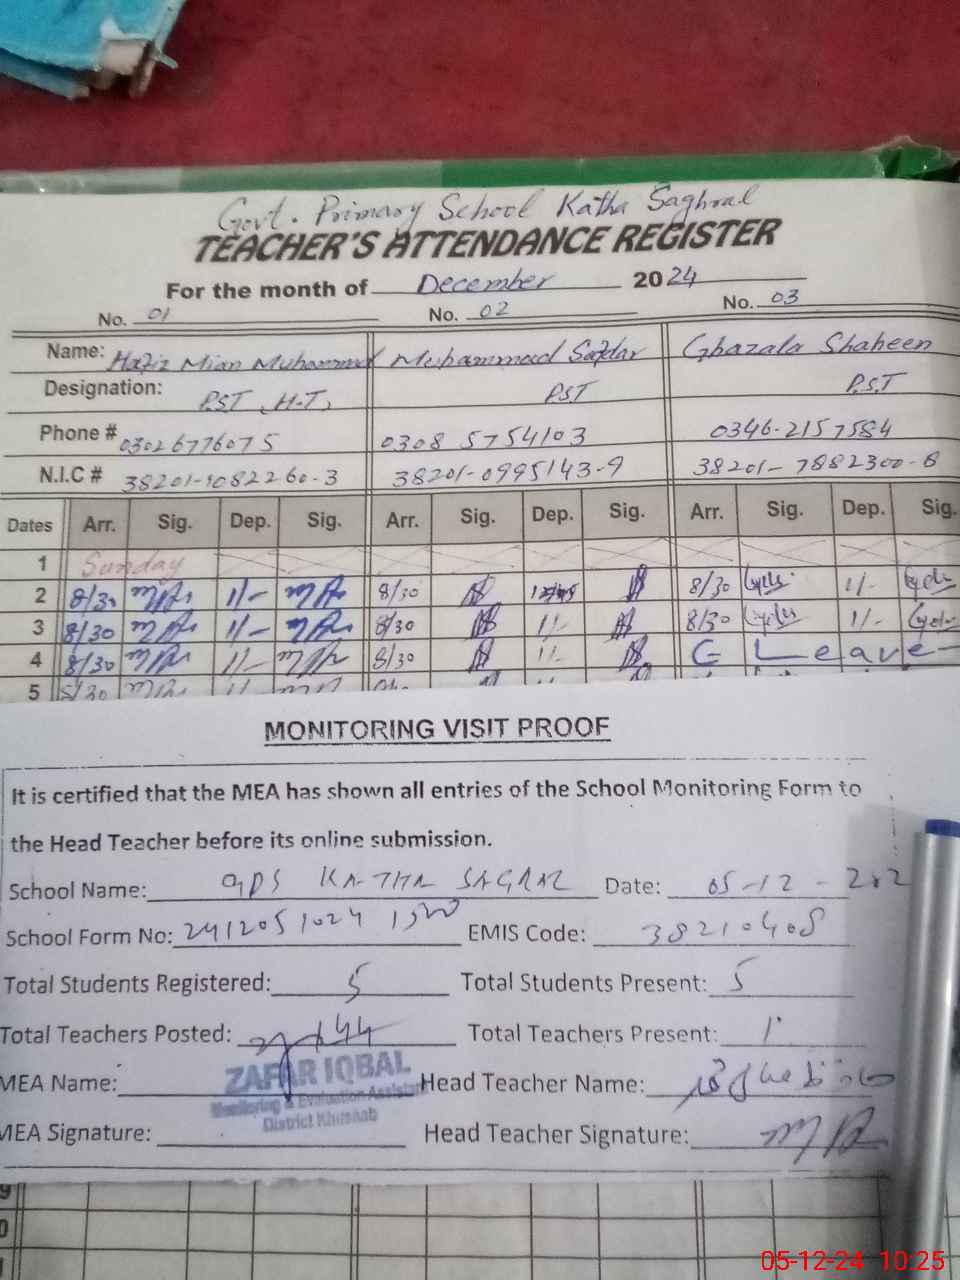 Govt. Primary School Katha Saghral
TEACHER'S ATTENDANCE REGISTER
For the month of December 2024
No. 01 No. 02 No. 03
Name: Hafiz Mian Muhammad Muhammad Safdar Ghazala Shaheen
Designation: P.S.T, H.T, PST P.S.T
Phone # 03026776075 0308 5754103 0346-2157584
N.I.C # 38201-1082260-3 38201-0995143-9 38201-7882300-8
Dates Arr. Sig. Dep. Sig. Arr. Sig. Dep. Sig. Arr. Sig. Dep. Sig.
1 Sunday
2 8/30 1/- 8/30 8/30 1/-
3 8/30 1/- 8/30 1/- 8/30 1/-
4 8/30 1/- 8/30 1/- C Leave
5 8/30
MONITORING VISIT PROOF
It is certified that the MEA has shown all entries of the School Monitoring Form to
the Head Teacher before its online submission.
School Name: GPS KATHA SAGRAL Date: 05-12-202
School Form No: EMIS Code: 38210408
Total Students Registered: 5 Total Students Present: 5
Total Teachers Posted: Total Teachers Present:
MEA Name: ZAFAR IQBAL Head Teacher Name:
Monitoring & Evaluation Assistant
District Khushab
MEA Signature: Head Teacher Signature:
9
0
1
05-12-24 10:25